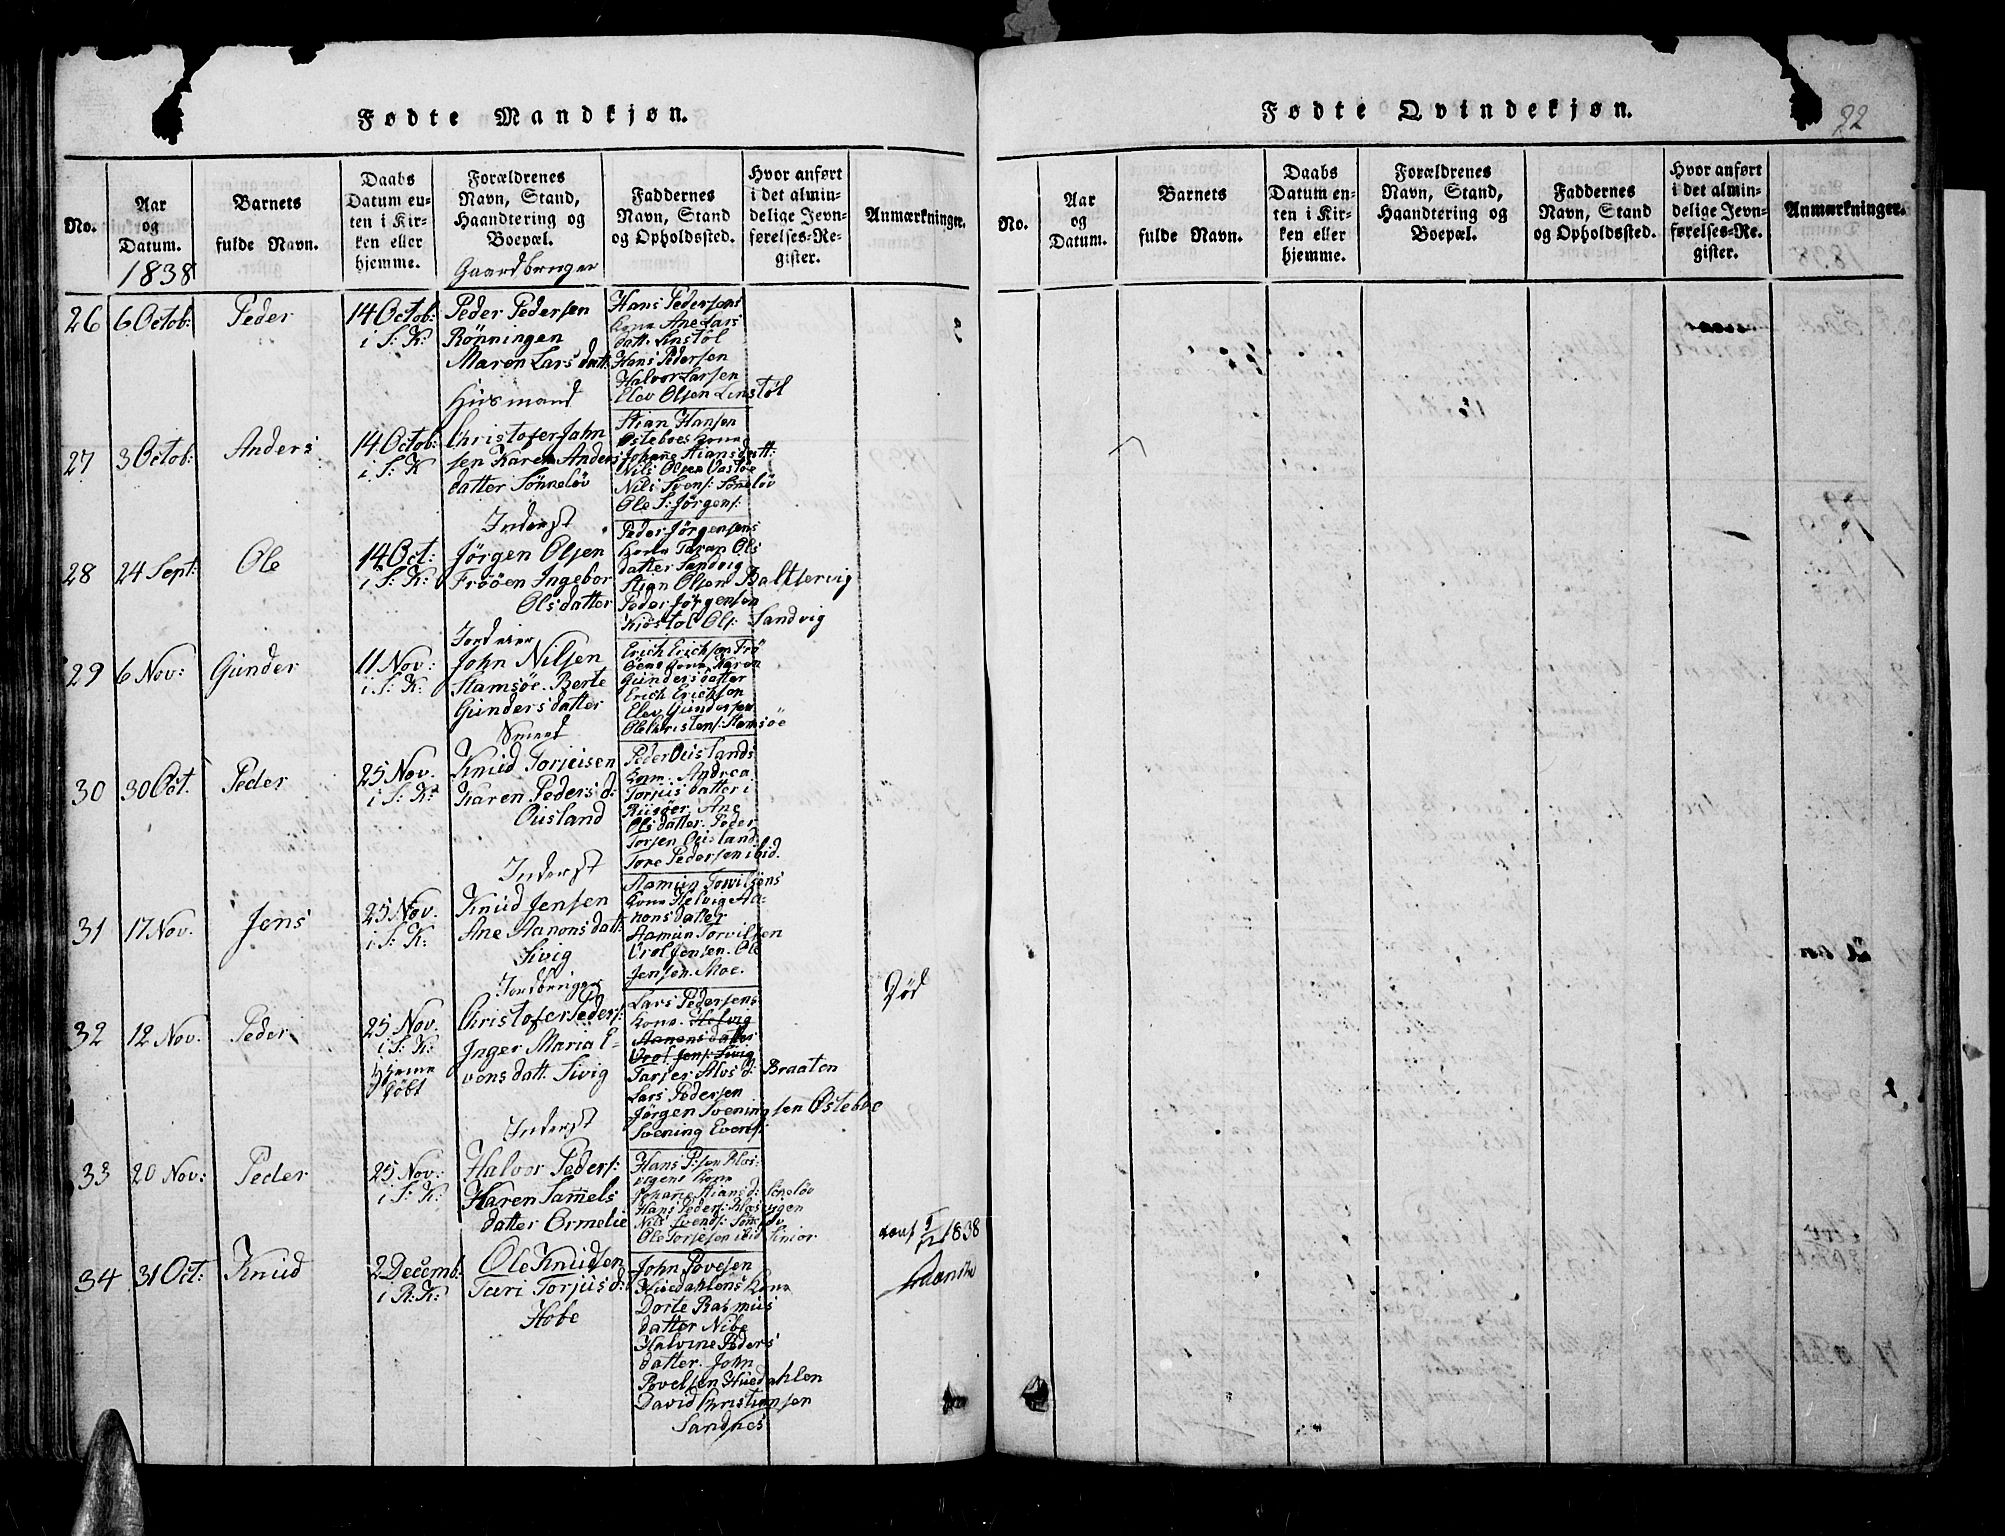 Fødte Mandkjøn.
No.
Aar
og
Datum.
1838
Barnets
fulde Navn.
Daabs
Datum en-
ten i Kir-
ken eller
hjemme.
Forældrenes
Navn, Stand,
Haandtering og
Boepæl.
Faddernes
Navn, Stand
og Opholdssted.
Hvor anført
i det almin-
delige Jevn-
førelses-Re-
gister.
Anmærkninger.
26
6 Octob:
Peder
14 Octob:
i S: K:
Gaardbruger
Peder Pedersen
Rönningen
Maren Lars datt:
Hans Pedersens
Kone Ane Lars
datt: Linstöl
Hans Pedersen
Halvor Larsen
Elev Olsen Linstöl
27
3 Octob:
Anders
14 Octob:
i S: K
Huusmand
Christofer Jahn
sen Karen Anders
datter Sönneløv
Stian Hansen
Osteboes Kone
Johane Stians datt:
Nils Olsen
Nils Svens: Söneløv
Ole S: Jörgens:
28
24 Sept:
Ole
14 Oct:
i S: K:
Inderst
Jörgen Olsen
Frøöen Ingebor
Olsdatter
Peder Jörgensens
Kone Taran Ols
datter Sandvig
Stian Olsen Baltservig
Peder Jörgensen
Kiöstol Ols: Sandvig
29
6 Nov:
Gunder
11 Nov:
i S: K:
Jordeier
John Nilsen
Stamsöe. Berte
Gunders datter
Erich Erichsen Frö
öens Kone Karen
Gundersdatter
Erich Erichsen
Elev Gundersen
Ole Christens: Stamsöe
30
30 Oct.
Peder
25 Nov.
i S: K:
Smed
Knud Torjusen
Karen Peders d:
Ousland
Peder Ouslands
Kone. Andrea
Torjus datter i
Riisöer. Ane
Olsdatter. Peder
Torsen Ousland
Tore Pedersen ibid.
31
17 Nov.
Jens
25 Nov.
i S. K:
Inderst
Knud Jensen
Ane Aanons datt:
Sivig
Aamun Torvilsens
Kone Helvig Aa-
nonsdatter
Aamun Torvilsen
Orol Jensen. Ole
Jensen. Moe.
32
12 Nov.
Peder
25 Nov.
i S: K:
hjeme
döbt
Jordbruger
Christofer Peders:
Inger Maria E-
vens datt. Sivig
Lars Pedersens
Kone. Helvig
Aanons datter
Orol Jens: Sivig
Tarjer Alvs d: Braaten
Lars Pedersen
Jörgen Sveningsen Osteboe
Svening Evens:
Död
33
20 Nov:
Peder
25 Nov:
i S: K:
Inderst
Halvor Peders:
Karen Samels
datter Ormelie
Hans P:sen
Kone
Johane Stians d: Söneløv
Hans Peders:
Nils Svends: Sönneløv
Ole Torjesen ibid Sinior
34
31 Oct:
Knud
2 Decemb:
i R: K:
Ole Knudsen
Tari Torjus d:
Hobe
John Povelsen
Huedahlens Kone
Dorte Rasmus
datter Nibe
Halvine Peders
datter. John
Povelsen Huedahlen
David Christiansen
Sandnes
1838
Fødte Qvindekjøn.
92
No.
Aar
og
Datum.
Barnets
fulde Navn.
Daabs
Datum en-
ten i Kir-
ken eller
hjemme.
Forældrenes
Navn, Stand,
Haandtering og
Boepæl.
Faddernes
Navn, Stand
og Opholdssted.
Hvor anført
i det almin-
delige Jevn-
førelses-Re-
gister.
Anmærkninger.